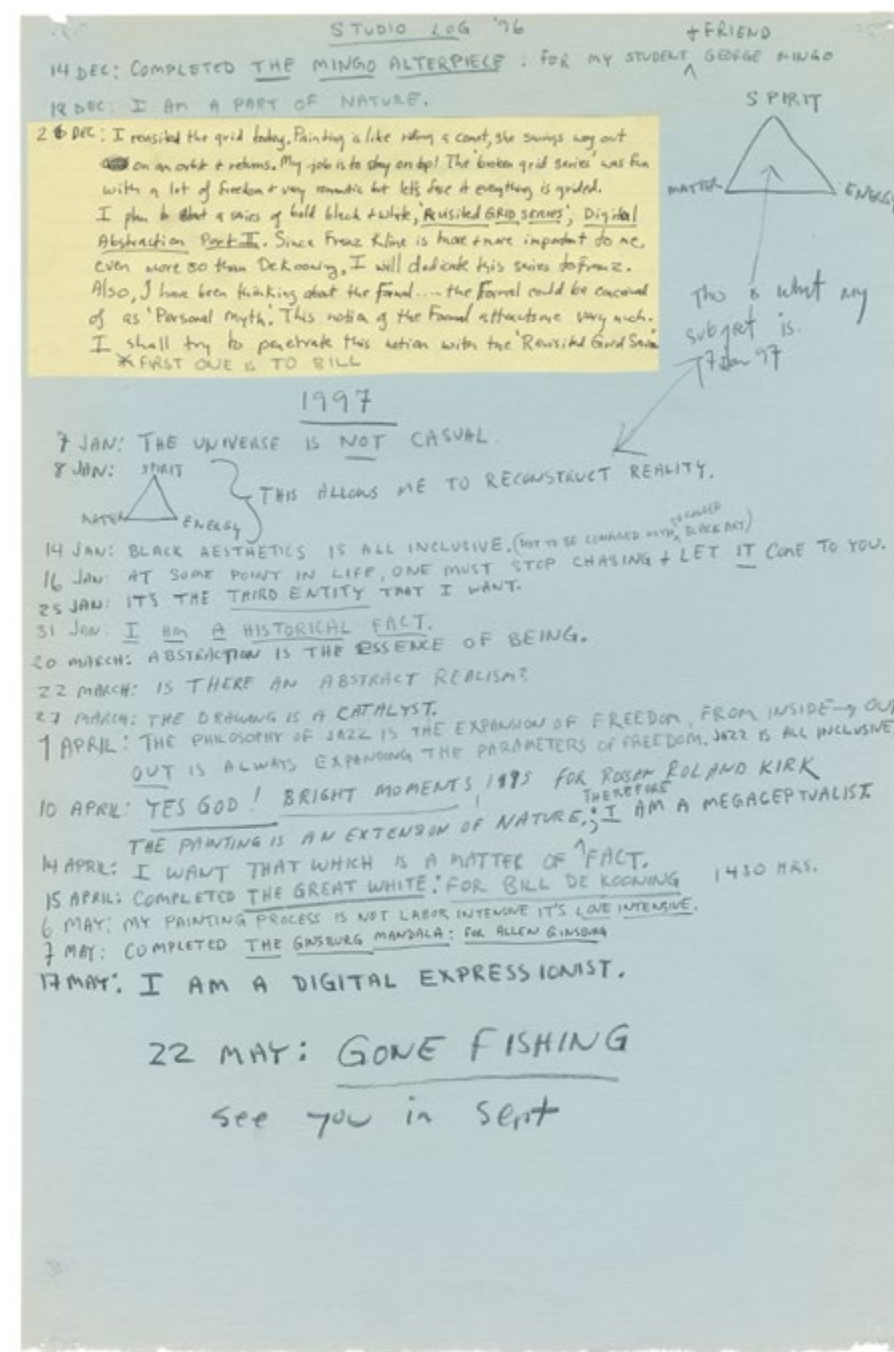 STUDIO LOG '96
14 DEC: COMPLETED THE MINGO ALTERPIECE: FOR MY STUDENT + FRIEND GEORGE MINGO
18 DEC: I AM A PART OF NATURE.
26 DEC: I revisited the grid today. Painting is like riding a comet, she swings way out
on an orbit + returns. My job is to stay on top! The 'broken grid series' was fun
with a lot of freedom + very romantic but let's face it everything is grided.
I plan to start a series of bold black + white, 'Revisited GRID series', Digital
Abstraction Part II. Since Franz Kline is more + more important to me,
even more so than DeKooning, I will dedicate this series to Franz.
Also, I have been thinking about the Formal.... the Formal could be conceived
of as 'Personal myth'. This notion of the Formal attracts me very much.
I shall try to penetrate this notion with the 'Revisited Grid Series'
* FIRST ONE IS TO BILL
SPIRIT
MATTER
ENERGY
This is what my
subject is.
7 Jan 97
1997
7 JAN: THE UNIVERSE IS NOT CASUAL.
8 JAN: SPIRIT
MATTER
ENERGY
THIS ALLOWS ME TO RECONSTRUCT REALITY.
14 JAN: BLACK AESTHETICS IS ALL INCLUSIVE. (NOT TO BE CONFUSED WITH SO CALLED BLACK ART)
16 JAN: AT SOME POINT IN LIFE, ONE MUST STOP CHASING + LET IT COME TO YOU.
25 JAN: IT'S THE THIRD ENTITY THAT I WANT.
31 JAN: I AM A HISTORICAL FACT.
20 MARCH: ABSTRACTION IS THE ESSENCE OF BEING.
22 MARCH: IS THERE AN ABSTRACT REALISM?
27 MARCH: THE DRAWING IS A CATALYST.
1 APRIL: THE PHILOSOPHY OF JAZZ IS THE EXPANSION OF FREEDOM, FROM INSIDE → OUT
OUT IS ALWAYS EXPANDING THE PARAMETERS OF FREEDOM. JAZZ IS ALL INCLUSIVE
10 APRIL: YES GOD! BRIGHT MOMENTS! 1995 FOR ROLAND KIRK
THE PAINTING IS AN EXTENSION OF NATURE; THEREFORE I AM A MEGACEPTUALIST.
14 APRIL: I WANT THAT WHICH IS A MATTER OF FACT.
15 APRIL: COMPLETED THE GREAT WHITE: FOR BILL DE KOONING 1430 HRS.
6 MAY: MY PAINTING PROCESS IS NOT LABOR INTENSIVE IT'S LOVE INTENSIVE.
7 MAY: COMPLETED THE GINSBURG MANDALA: FOR ALLEN GINSBURG
17 MAY: I AM A DIGITAL EXPRESSIONIST.
22 MAY: GONE FISHING
see you in Sept